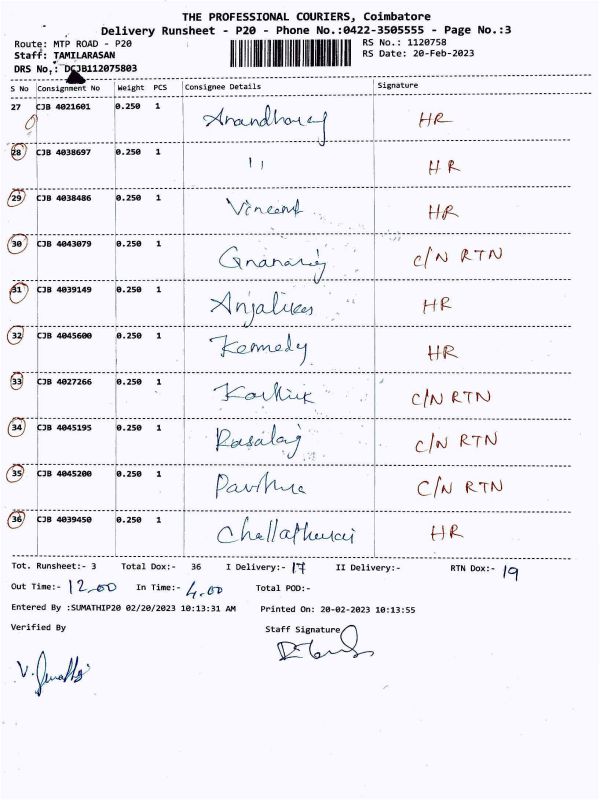 THE PROFESSIONAL COURIERS, Coimbatore
Delivery Runsheet - P20 - Phone No.:0422-3505555 - Page No.:3
Route: MTP ROAD - P20 RS No.: 1120758
Staff: TAMILARASAN RS Date: 20-Feb-2023
DRS No.: DCJB112075803
S No Consignment No Weight PCS Consignee Details Signature
27 CJB 4021601 0.250 1 Anandharaj HR
28 CJB 4038697 0.250 1 11 HR
29 CJB 4038486 0.250 1 Vincent HR
30 CJB 4043079 0.250 1 Gnanaraj C/N RTN
31 CJB 4039149 0.250 1 HR
32 CJB 4045600 0.250 1 Kennedy HR
33 CJB 4027266 0.250 1 Karthik C/N RTN
34 CJB 4045195 0.250 1 Rasalaj C/N RTN
35 CJB 4045200 0.250 1 C/N RTN
36 CJB 4039450 0.250 1 Challathurai HR
Tot. Runsheet:- 3 Total Dox:- 36 I Delivery:- 17 II Delivery:- RTN Dox:- 19
Out Time:- 12.00 In Time:- 4.00 Total POD:-
Entered By :SUMATHIP20 02/20/2023 10:13:31 AM Printed On: 20-02-2023 10:13:55
Verified By Staff Signature